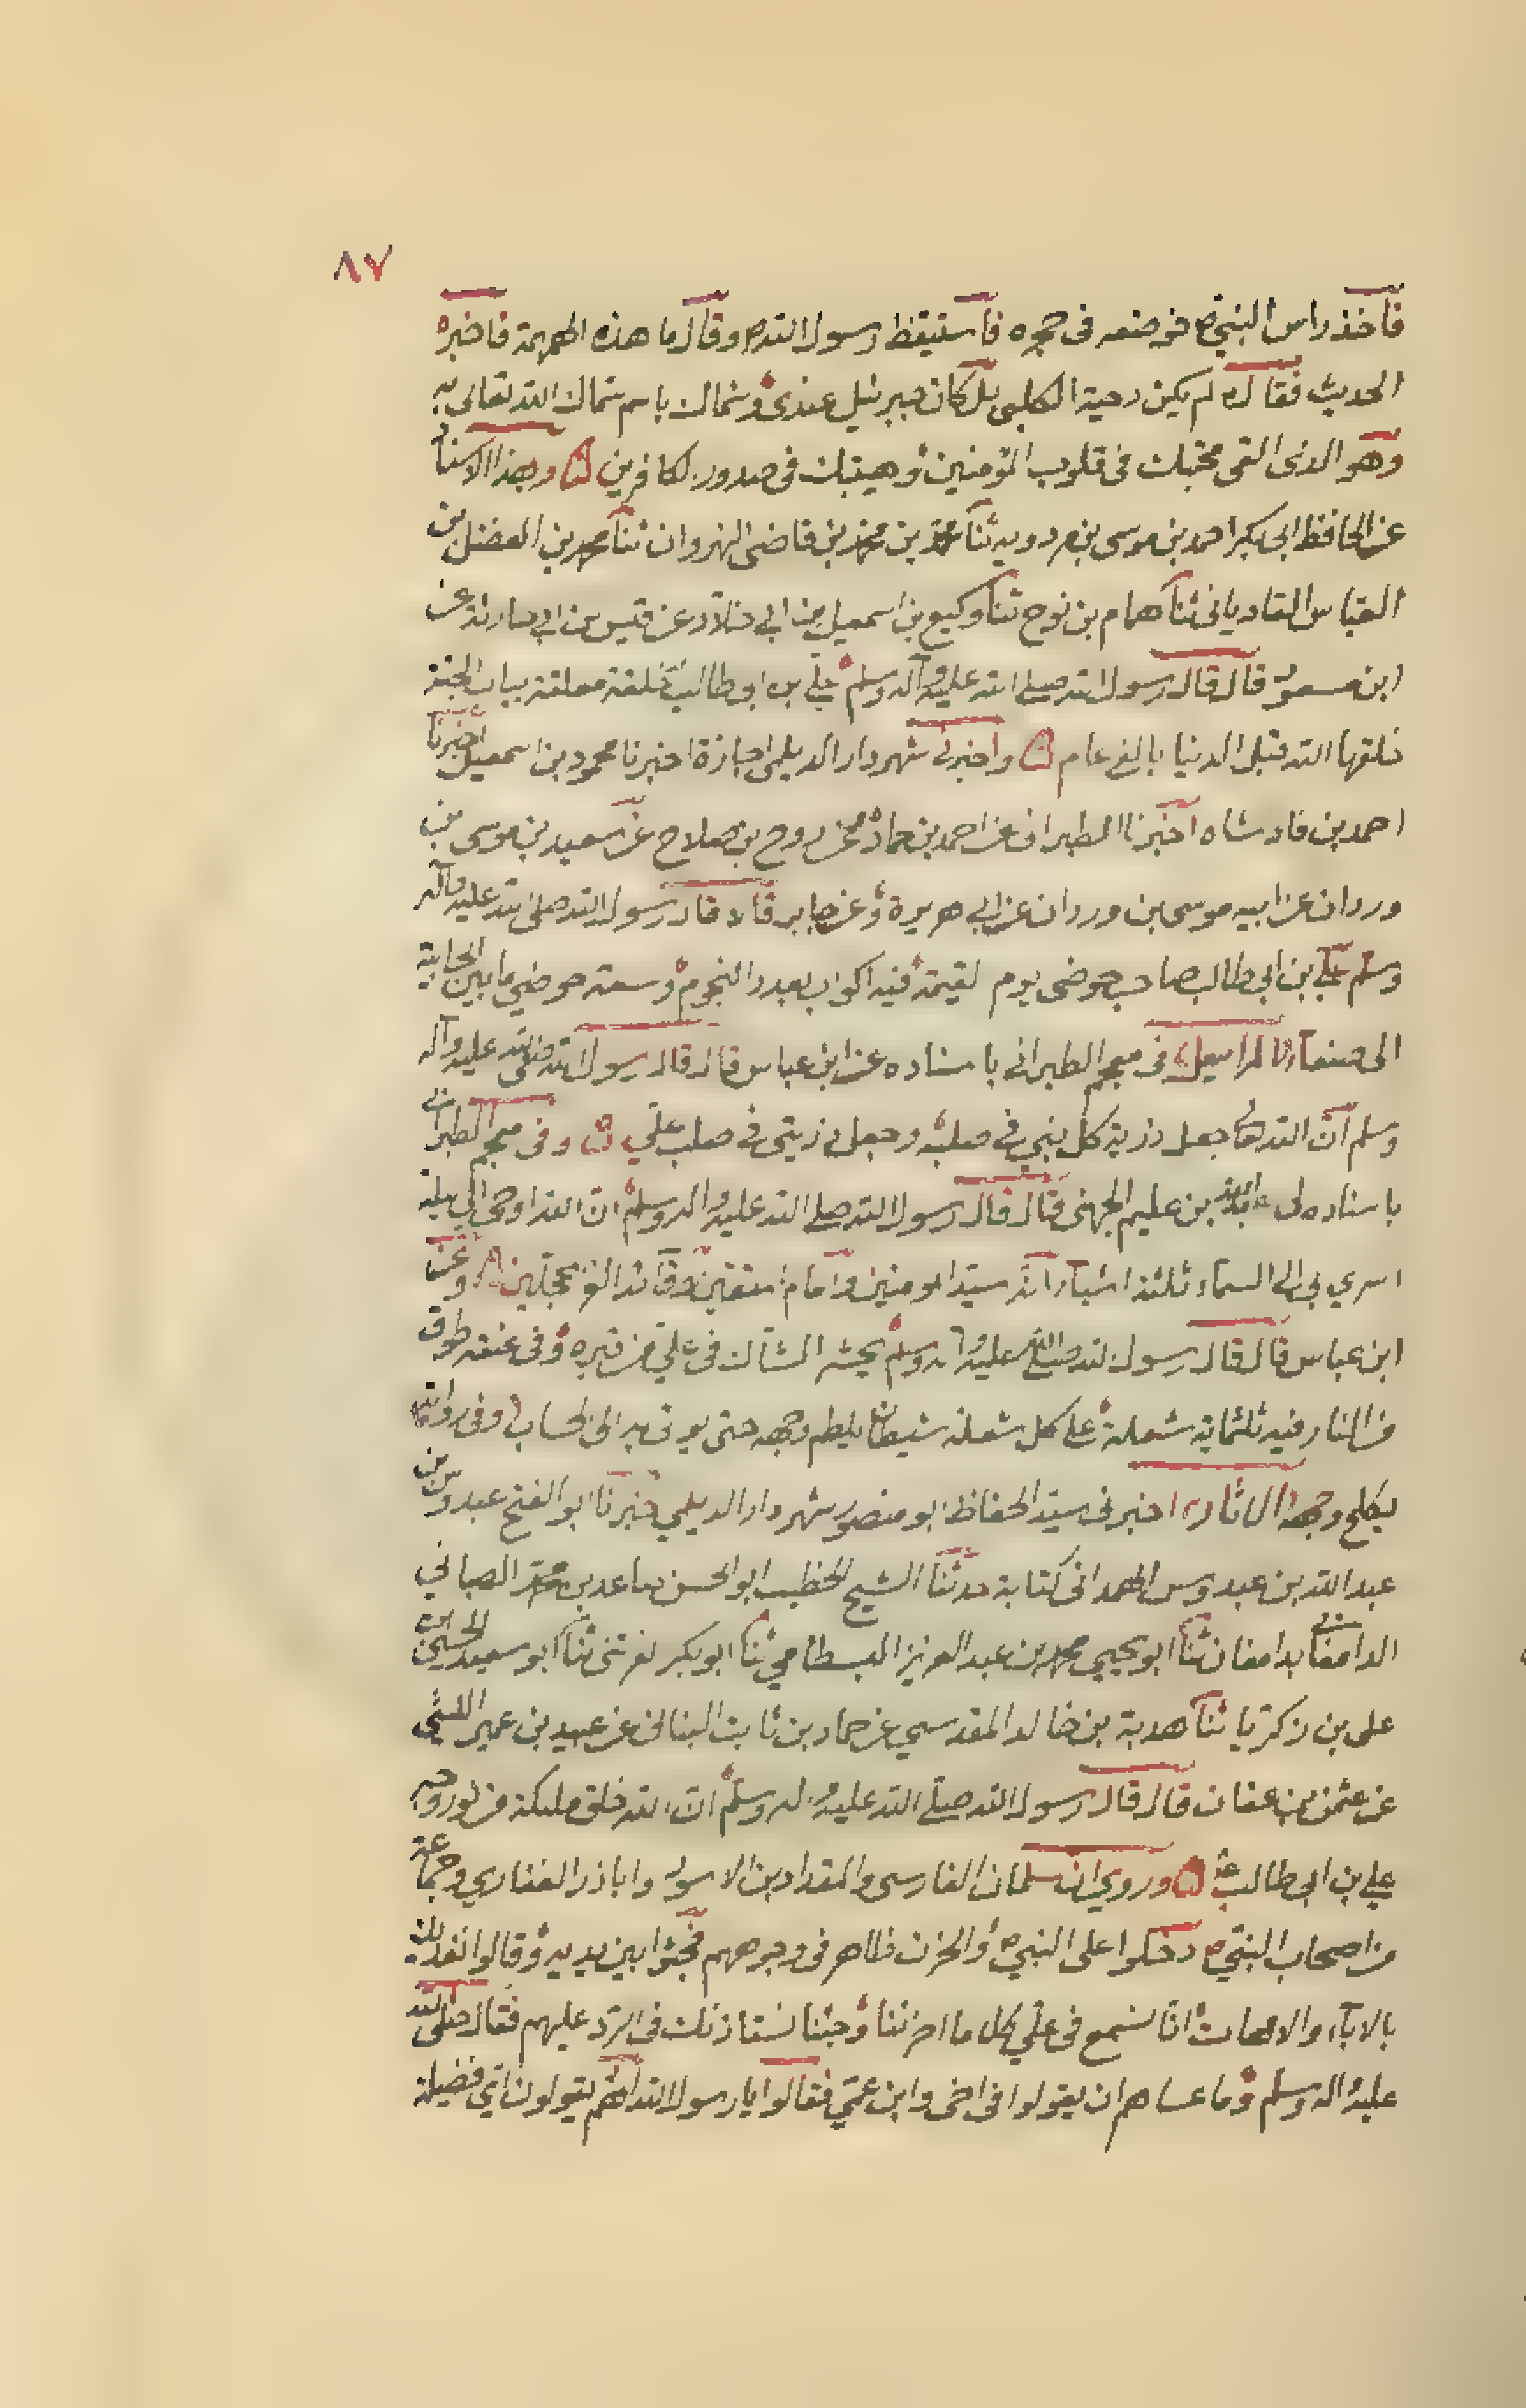 ٨٧
فاخذ راس النبي ص فوضعه فى حجره فاستيقظ رسول الله ص وقال ما هذه الهمهمة فاخبره
الحديث فقال ص لم يكن دحية الكلبى بل كان جبرئيل عندى وسماك باسم سماك الله تعالى به
وهو الذى القى محبتك فى قلوب المؤمنين وهيبتك فى صدور الكافرين وبهذا الاسناد
عن الحافظ ابى بكر احمد بن موسى بن مردويه ثنا محمد بن محمد بن قاضى النهروان ثنا محمد بن الفضل بن
العباس القاديانى ثنا همام بن نوح ثنا وكيع بن اسمعيل بن ابى خلاد عن قيس بن ابى حارثة عن
ابن مسعود قال قال رسول الله صلى الله عليه وآله وسلم على بن ابى طالب حلقة معلقة بباب الجنة
خلقها الله قبل الدنيا بالف عام واخبرنى شهردار الديلمى اجازة اخبرنا محمود بن اسمعيل اخبرنا
احمد بن فادشاه اخبرنا الطبرانى عن احمد بن حماد عن روح بن صلاح عن سعيد بن موسى بن
وردان عن ابيه موسى بن وردان عن ابى هريرة وعن جابر قالا قال رسول الله صلى الله عليه وآله
وسلم على بن ابى طالب صاحب حوضى يوم القيمة فيه اكواب بعدد النجوم وسعة حوضى ما بين الجابية
الى صنعاء فى معجم الطبرانى باسناده عن ابن عباس قال قال رسول الله صلى الله عليه وآله
وسلم ان الله تعالى جعل ذرية كل نبى فى صلبه وجعل ذريتى فى صلب على وفى معجم الطبرانى
باسناده الى عبد الله بن عليم الجهنى قال قال رسول الله صلى الله عليه وآله وسلم ان الله اوحى الى ليلة
اسرى بى الى السماء ثلثة اشياء انه سيد المومنين وامام المتقين وقائد الغر المحجلين وعن
ابن عباس قال قال رسول الله صلى الله عليه وآله وسلم يحشر الشاك فى على من قبره وفى عنقه طوق
من النار فيه ثلثماية شعلة على كل شعلة شيطان يلطم وجهه حتى يوقف به الى الحساب وفى رواية
يكلح وجهه اخبرنى سيد الحفاظ ابو منصور شهردار الديلمى اخبرنا ابو الفتح عبدوس بن
عبد الله بن عبدوس الهمدانى كتابة حدثنا الشيخ الخطيب ابو الحسن صاعد بن محمد
الدامغانى بدامغان ثنا ابو يحيى محمد بن عبد العزيز البسطامى ثنا ابو بكر القرشى ثنا ابو سعيد الحسن بن
على بن زكريا ثنا هدبة بن خالد المقدسى عن حماد بن ثابت البنانى عن عبيد بن عمير الليثى
عن عثمن بن عفان قال قال رسول الله صلى الله عليه وآله وسلم ان الله خلق ملئكة من نور وجه
على بن ابى طالب وروى ان سلمان الفارسى والمقداد بن الاسود واباذر الغفارى وجماعة
من اصحاب النبى ص دخلوا على النبى ص والحزن ظاهر فى وجوههم فجثوا بين يديه وقالوا نفديك
بالاباء والامهات انا لنسمع فى على كل ما احزننا وجئنا لنستاذنك فى الرد عليهم فقال صلى الله
عليه وآله وسلم وما عساهم ان يقولوا فى اخى وابن عمى فقالوا يا رسول الله انهم يقولون اى فضيلة